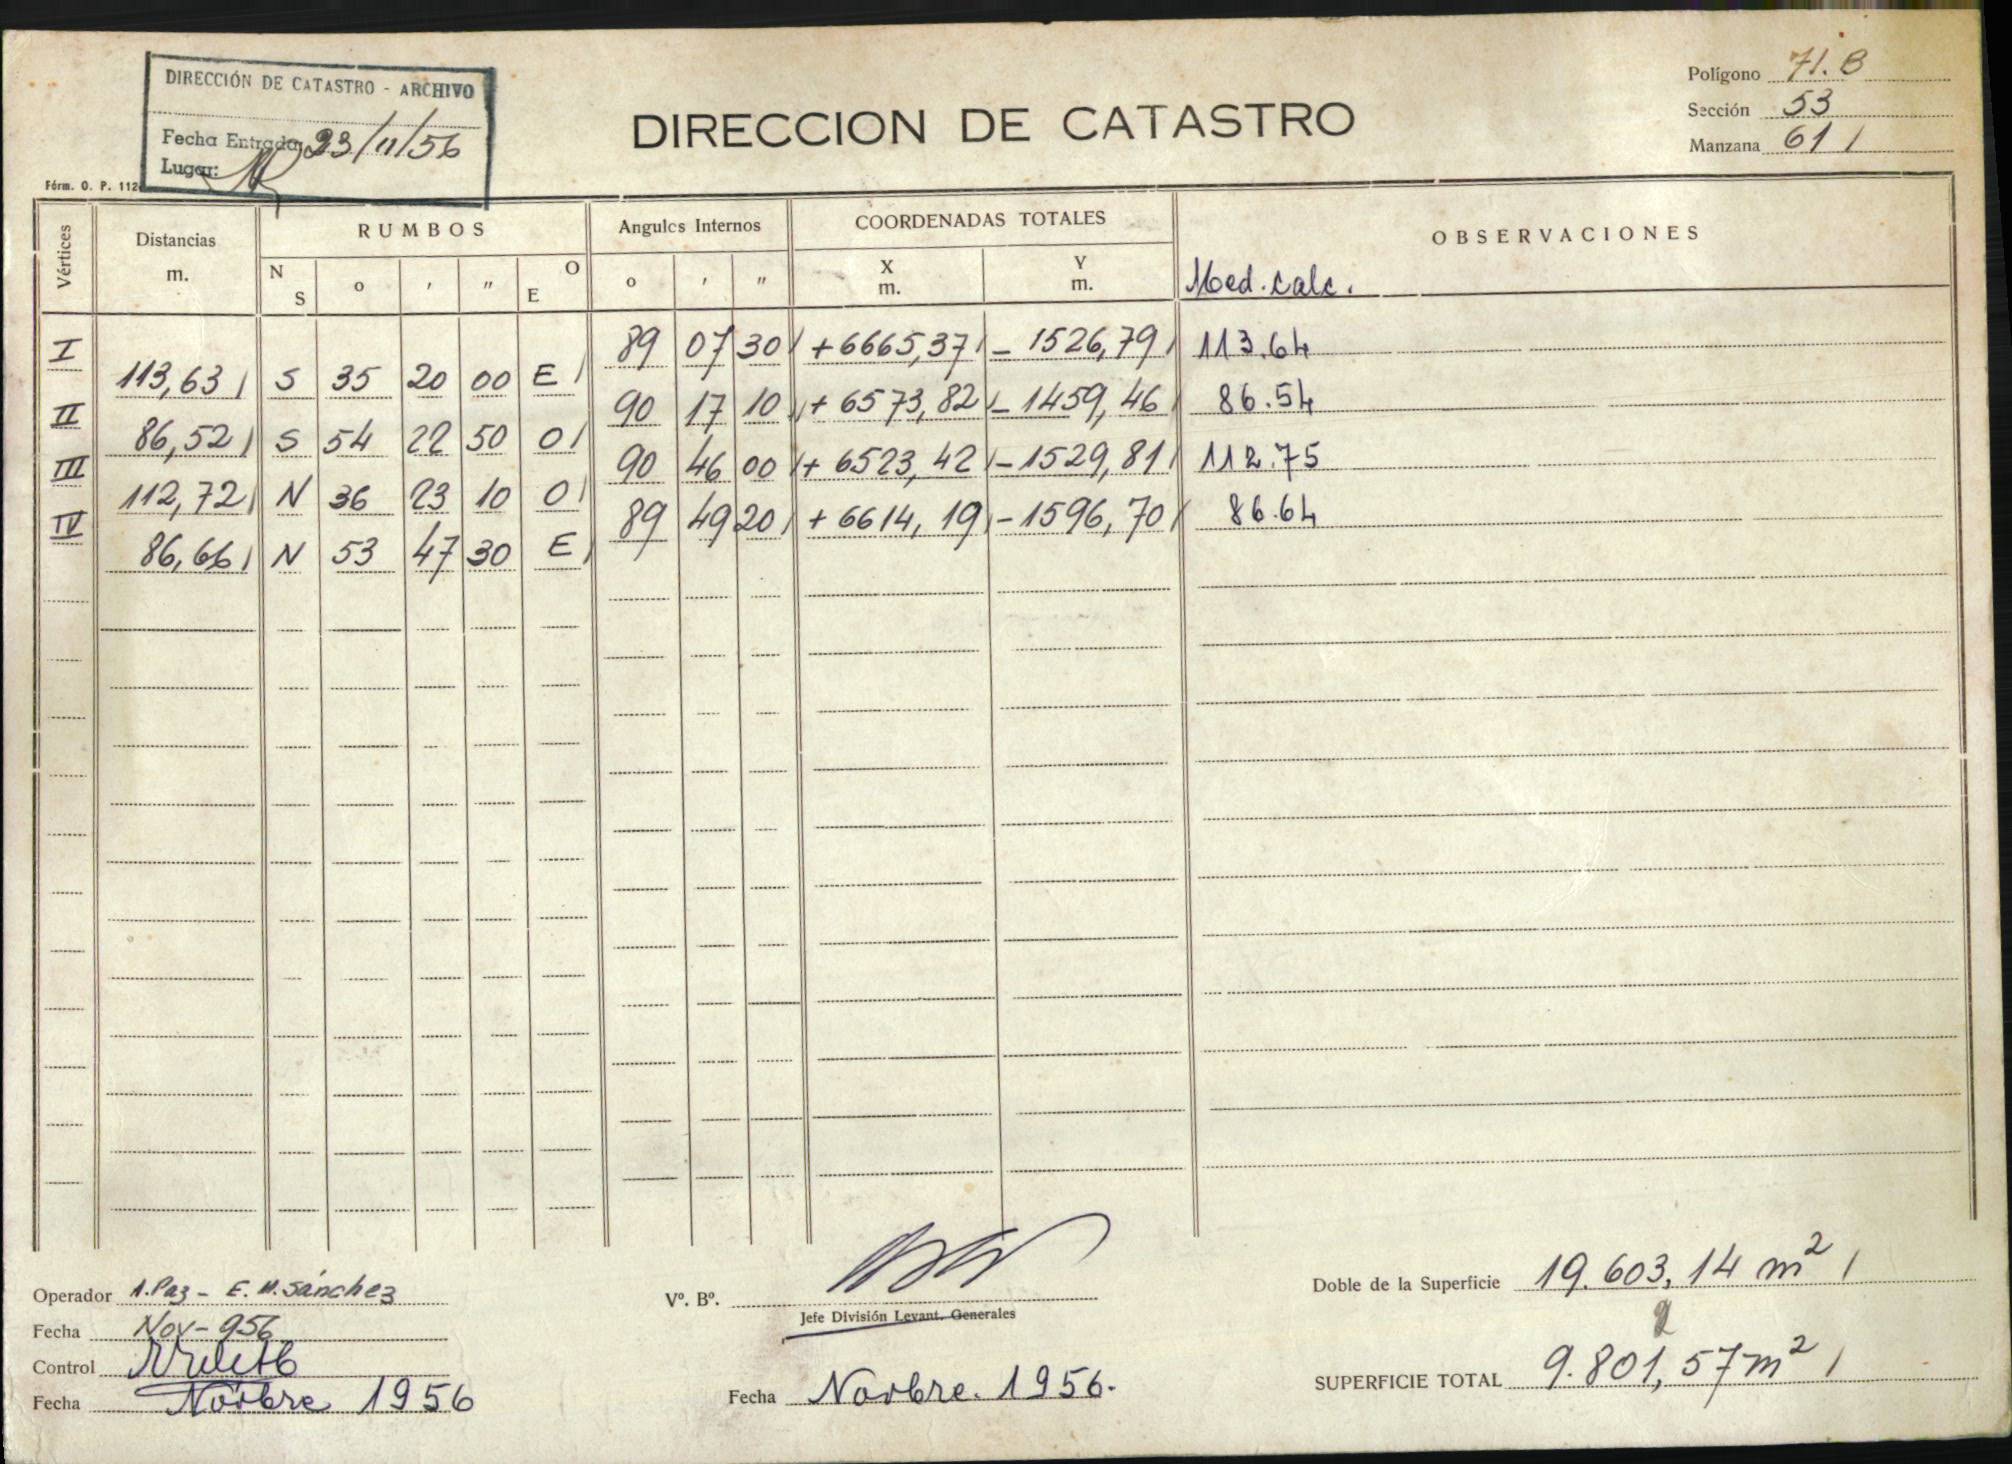 DIRECCIÓN DE CATASTRO - ARCHIVO
Fecha Entrada: 23/11/56
Lugar:
Fórm. O. P. 112
DIRECCION DE CATASTRO
Polígono 71.B
Sección 53
Manzana 61 /
Vértices Distancias m. RUMBOS Angulos Internos COORDENADAS TOTALES OBSERVACIONES
N S o ′ ″ O E o ′ ″ X m. Y m. Med. calc.
I 89 07 30 +6665,37 - 1526,79 113.64
113,63 S 35 20 00 E
II 90 17 10 + 6573,82 - 1459,46 86.54
86,52 S 54 22 50 O
III 90 46 00 + 6523,42 - 1529,81 112.75
112,72 N 36 23 10 O
IV 89 49 20 + 6614,19 - 1596,70 86.64
86,66 N 53 47 30 E
Operador A. Paz - E. M. Sánchez
Fecha Nov - 956
Control
Fecha Novbre 1956
Vº. Bº.
Jefe División Levant. Generales
Fecha Novbre. 1956.
Doble de la Superficie 19.603,14 m² /
2
SUPERFICIE TOTAL 9.801,57 m² /